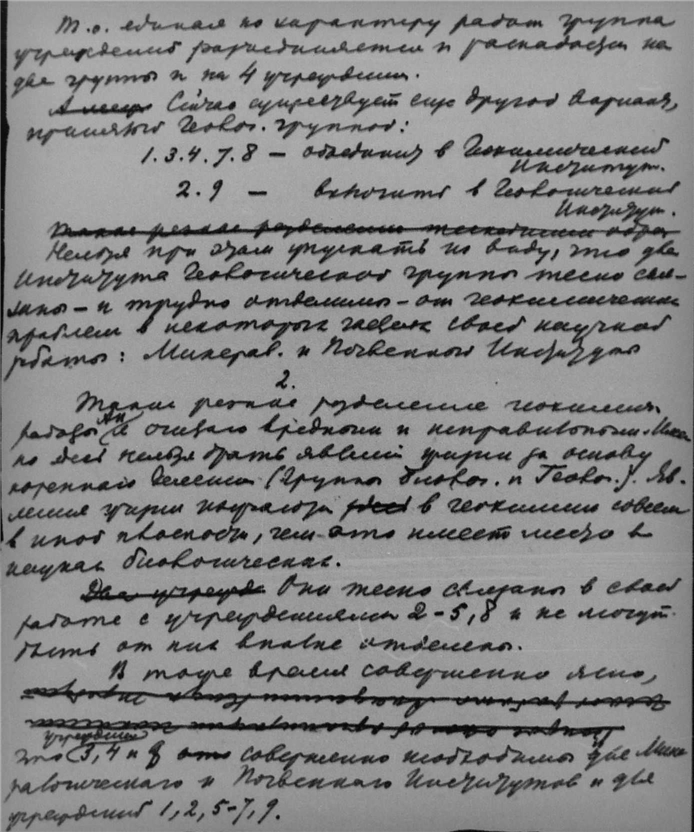 Т.о. единая по характеру работ группа
учреждений разъединяется и распадается на
две группы и на 4 учреждения.
Сейчас существует еще другой вариант,
принятый Геолог. группой:
1.3.4.7.8 — объединить в Геохимический
Институт.
2.9 — включить в Геологический
Институт.
Такое резкое разделение
Нельзя при этом упускать из виду, что два
Института Геологической группы тесно свя-
заны – и трудно отделимы – от геохимических
проблем в некоторых частях своей научной
работы: Минерал. и Почвенный Институты
2.
Такое резкое разделение геохимич.
работы АН я считаю вредным и неправильным.
но здесь нельзя брать явления жизни за основу
коренного деления (Группы биолог. и Геолог.). Яв-
ления жизни изучаются в геохимии совсем
в иной плоскости, чем это имеет место в
науках биологических.
Два учрежд. Они тесно связаны в своей
работе с учреждениями 2–5, 8 и не могут
быть от них вполне отделены.
В то же время совершенно ясно,
учреждения
что 3, 4 и 8 совершенно необходимы для Мине-
ралогического и Почвенного Институтов и для
учреждений 1, 2, 5–7, 9.